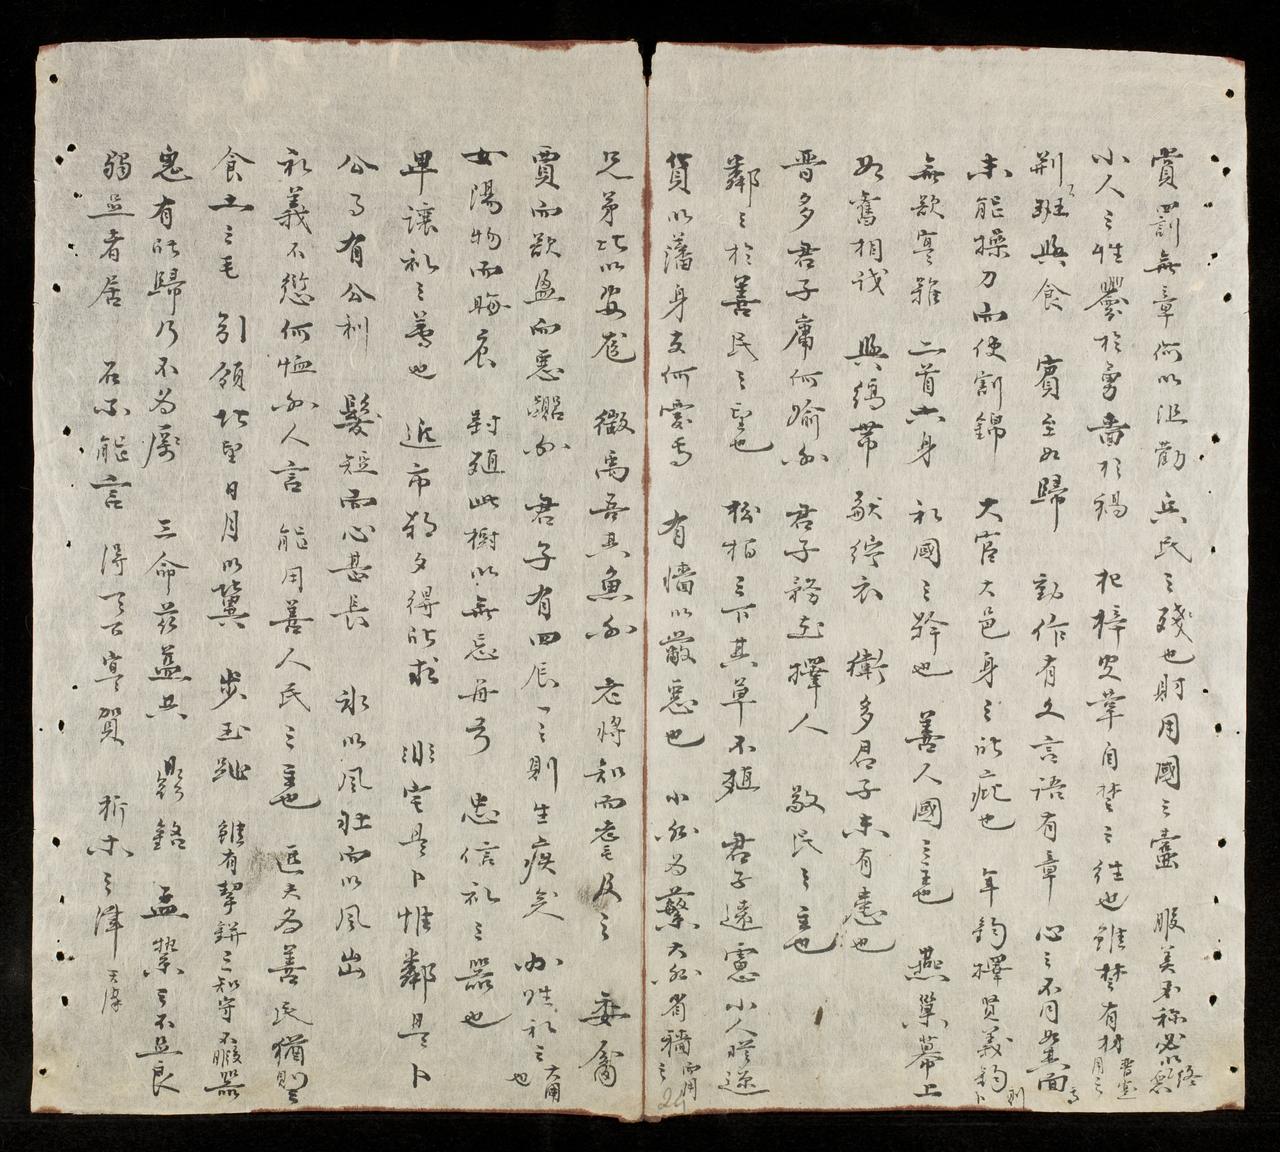 賞罰無章何以沮勸 兵民之殘也財用國之蠹 服美不称必以惡終
小人之性釁於勇嗇於禍 杞梓皮革自楚之往也雖楚有材晋實用之
荆班與食 賓至如歸 動作有文言語有章 心之不同如其面焉
未能操刀而使割錦 大官大邑身之所庇也 年鈞擇賢義鈞則卜
無欲寔難 二首六身 礼國之幹也 善人國之主也 燕巢幕上
如舊相识 與縞帶 献紵衣 衛多君子未有患也
晋多君子庸何媮 君子務在擇人 敬民之主也
鄰之於善民之望也 松柏之下其草不殖 君子遠慮小人從邇
貨以藩身文何愛焉 有墻以蔽惡也 小 為蘩大 省穡而用之
兄弟比以安尨 微禹吾其魚 老將知而耄及之 委禽
賈而欲盈而惡囂 君子有四辰一之則生疾矣 姓礼之大用也
女陽物而晦辰 封殖此樹以無忘角弓 忠信礼之器也
卑讓礼之尊也 近市朝夕得所求 非宅是卜惟鄰是卜
公事有公利 髮短而心甚長 氷以風壯而以風出
礼義不愆何恤 人言 能用善人民之主也 匹夫為善民猶則之
食土之毛 引領北望日月以冀 步玉趾 雖有挈缾之知守不假器
鬼有所歸乃不為厲 三命茲益共 孟縶之不足良
弱足者居 石不能言 得天下寔賀 析木之津天漢
24